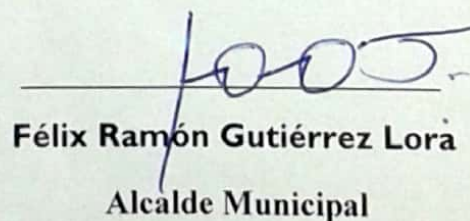 Félix Ramón Gutiérrez Lora
Alcalde Municipal